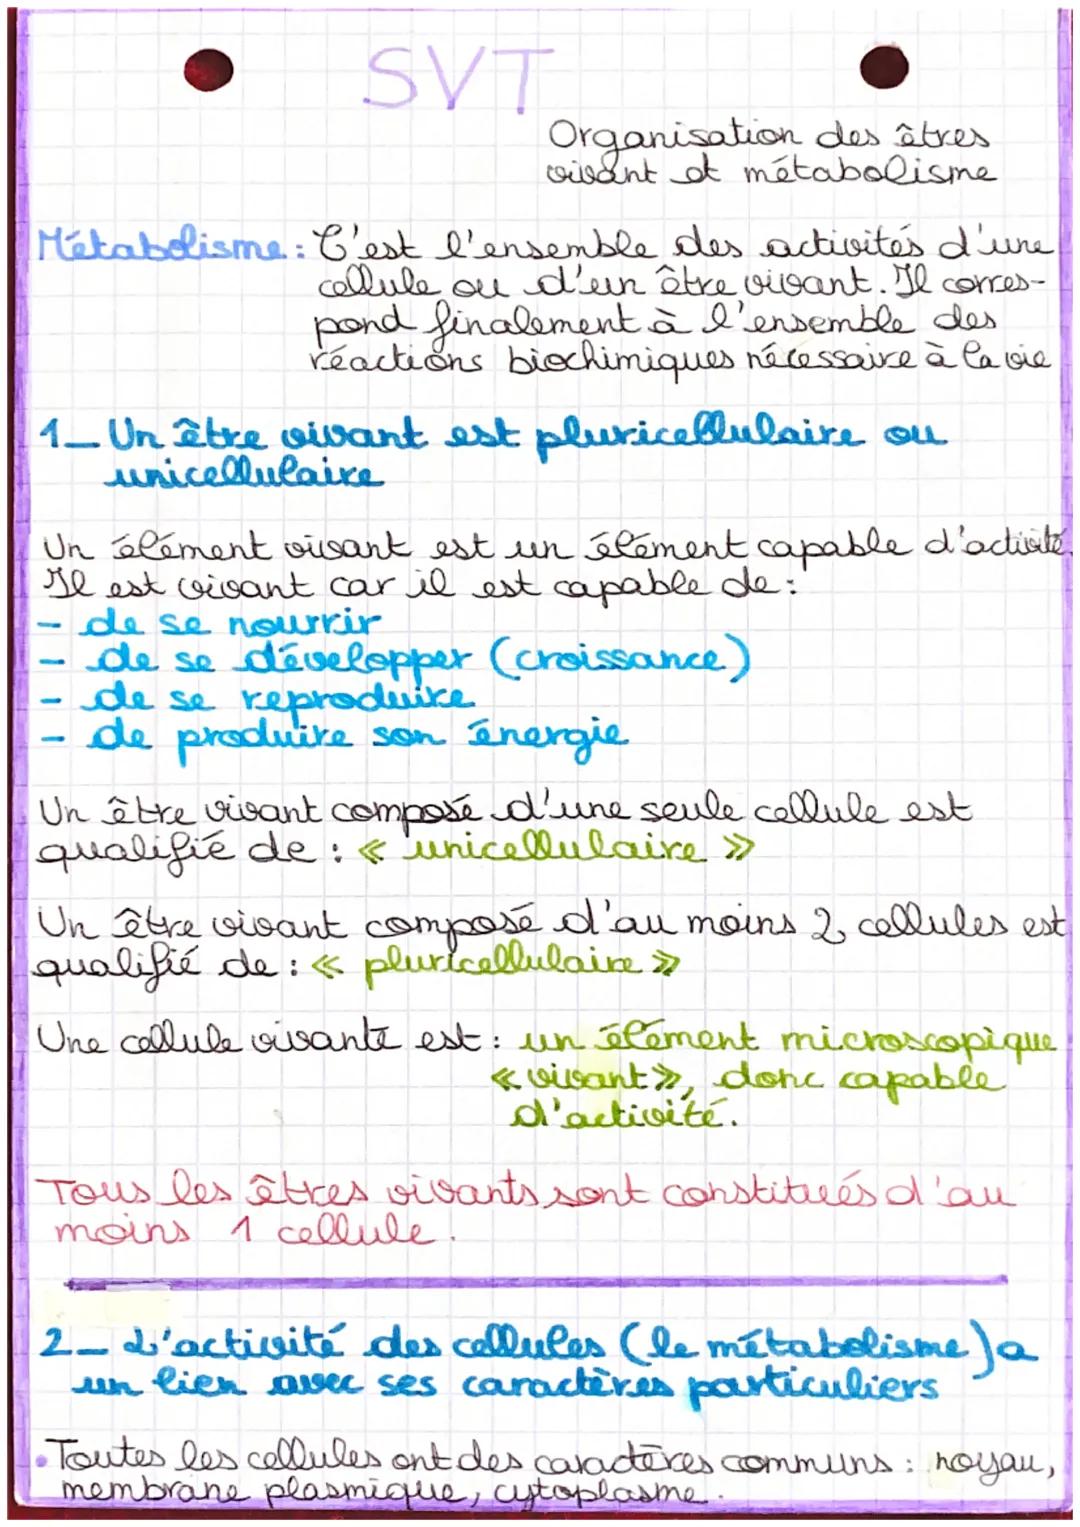 SVT
Organisation des êtres
vivant et métabolisme
Métabolisme : C'est l'ensemble des activités d'une
cellule ou d'un être vivant. Il corres-
pond finalement à l'ensemble des
réactions biochimiques nécessaire à la vie
1_ Un être vivant est pluricellulaire ou
unicellulaire
Un élément vivant est un élément capable d'activité.
Il est vivant car il est capable de :
- de se nourrir
- de se développer (croissance)
- de se reproduire
- de produire son énergie
Un être vivant composé d'une seule cellule est
qualifié de : « unicellulaire »
Un être vivant composé d'au moins 2 cellules est
qualifié de : « pluricellulaire »
Une cellule vivante est : un élément microscopique
« vivant », donc capable
d'activité.
Tous les êtres vivants sont constitués d'au
moins 1 cellule.
2_ L'activité des cellules (le métabolisme) a
un lien avec ses caractères particuliers
• Toutes les cellules ont des caractères communs : noyau,
membrane plasmique, cytoplasme.